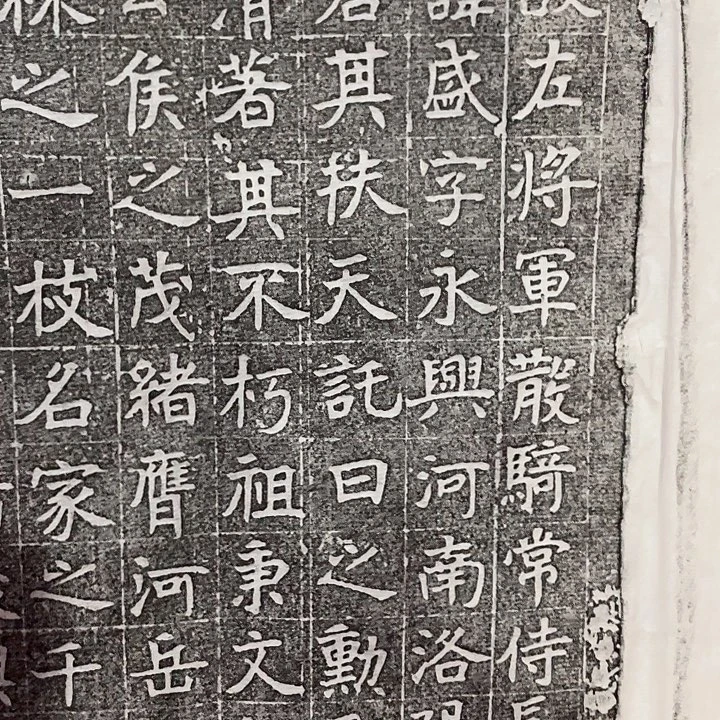 左将軍散騎常侍
諱盛字永興河南洛
君其扶天託日之勳
著其不朽祖秉文
侯之茂緒膺河岳
之一枝名家之千